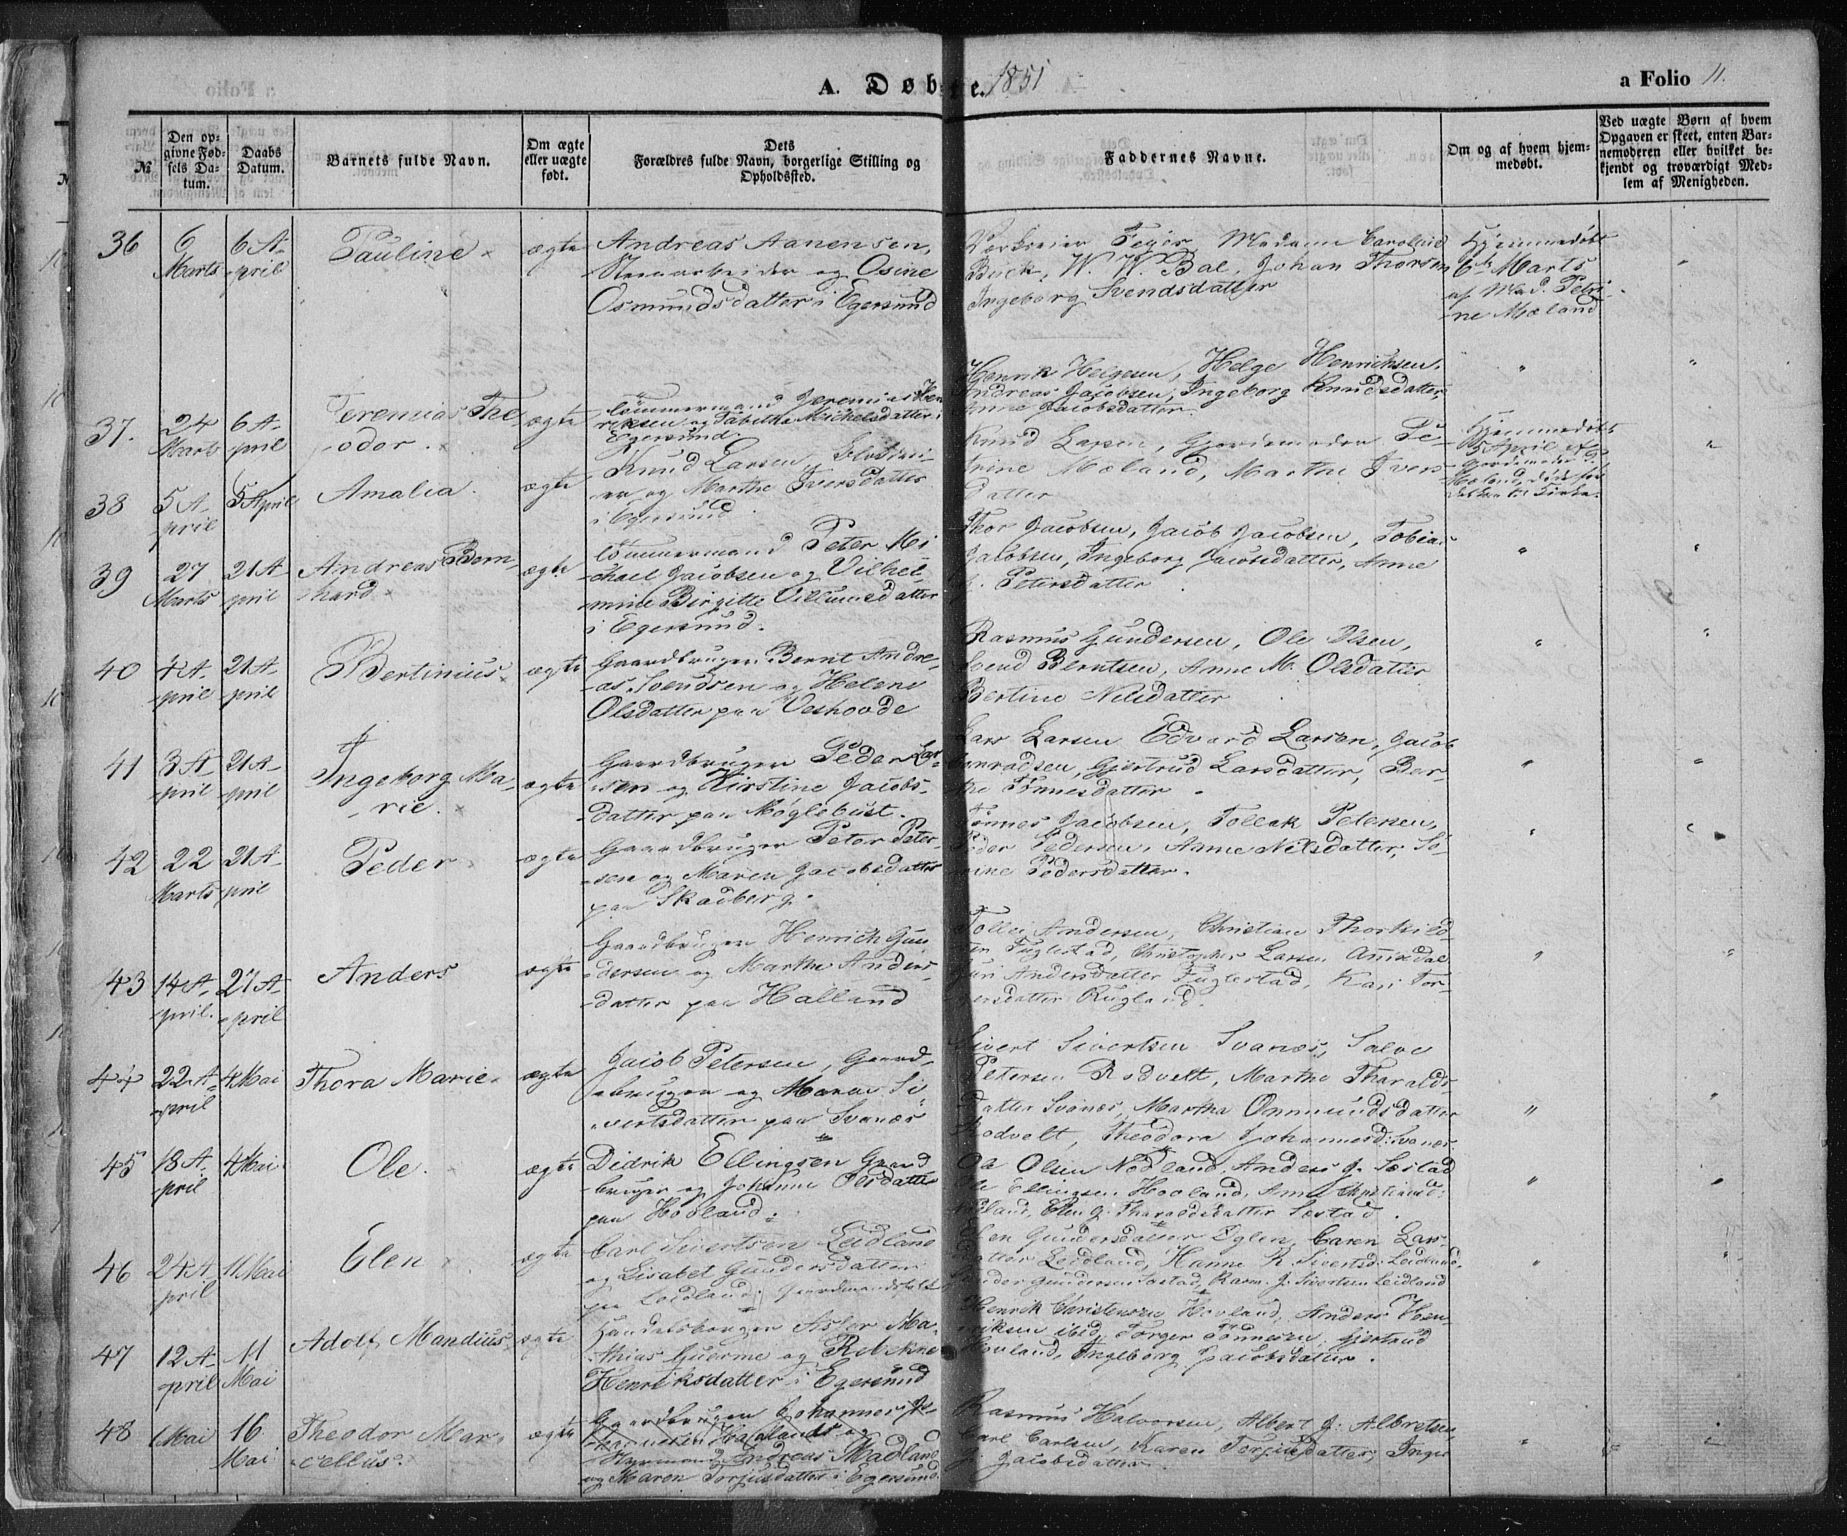 A. Døbte. 1851
a Folio 11.
№
Den opgivne Fødsels Datum.
Daabs Datum.
Barnets fulde Navn.
Om ægte eller uægte født.
Dets Forældres fulde Navn, borgerlige Stilling og Opholdssted.
Faddernes Navne.
Om og af hvem hjemmedøbt.
Ved uægte Børn af hvem Opgaven er skeet, enten Barnemoderen eller hvilket bekjendt og troværdigt Medlem af Menigheden.
36
6 Marts
6 April
Pauline
ægte
Andreas Aanensen,
og Osine
Osmundsdatter i Egersund
Madame Caroline
Buck, W. W. Bal, Johan Thorsen
Ingeborg Svendsdatter
Hjemmedøbt
6te Marts
af Mad. Petri-
ne Mæland
37.
24 Marts
6 April
Jeremias The-
odor.
ægte
Tømmermand Jeremias Hen-
riksen og Tabitha Michelsdatter i
Egersund.
Henrik Helgesen, Helge Henrichsen,
Andreas Jacobsen, Ingeborg Knudsdatter
Anne Jacobsdatter.
38
5 April
5 April
Amalia.
ægte
Knud Larsen,
og Marthe Iversdatter
i Egersund.
Knud Larsen, Gjordemoder Pe-
trine Mæland, Marthe Ivers-
datter
Hjemmedøbt
5 April af
Gjordemoder P.
Mæland,
39
27 Marts
21 April
Andreas Bern-
hard
ægte
Tømmermand Peter Mi-
chael Jacobsen og Vilhel-
mine Birgitte Villumsdatter
i Egersund.
Thor Jacobsen, Jacob Jacobsen, Tobias
Jacobsen, Ingeborg Jacobsdatter, Anne
Petersdatter
40
4 April
21 April
Bertinius
ægte
Gaardbruger Bernt Andre-
as Svendsen og Helene
Olsdatter paa Veshovde
Rasmus Gundersen, Ole Olsen,
Svend Berntsen, Anne M. Olsdatter
Bertine Nilsdatter
41
3 April
21 April
Ingeborg Ma-
rie.
ægte
Gaardbruger Peder Lar-
sen og Kirstine Jacobs-
datter paa Møglebust.
Lars Larsen Edvard Larsen, Jacob
Conradsen, Gjertrud Larsdatter, Ber-
the Tønnesdatter
42
22 Marts
21 April
Peder
ægte
Gaardbruger Peter Peter-
sen og Maren Jacobsdatter
paa Skadberg.
Tønnes Jacobsen, Tollak Petersen,
Peder Pedersen, Anne Nilsdatter, Se-
rine Pedersdatter.
43
14 April.
27 April
Anders
ægte
Gaardbruger Henrich Gun-
dersen og Marthe Anders-
datter paa Halland
Tolle Andersen, Christian Thorkild-
sen Fuglestad, Christopher Larsen Aamdal
Guri Andersdatter Fuglestad, Kari Tor-
gersdatter Rugland.
44
22 April
4 Mai
Thora Marie.
ægte
Jacob Petersen, Gaard-
bruger og Maren Si-
vertsdatter paa Svanæs
Sivert Sivertsen Svanæs, Salve
Petersen Rodvelt, Marthe Tharalds-
datter Svanæs, Martha Ommundsdatter
Rodvelt, Theodora Johannesd: Svanæs
45
18 April
4 Mai
Ole.
ægte
Didrik Ellingsen Gaard-
bruger og Johanne Olsdatter
paa Hovland.
Ole Olsen Nodland, Anders J. Sæstad
Ole Ellingsen Hovland, Anne Christiansd:
Nodland, Elen G. Tharaldsdatter Sæstad.
46
24 April
11 Mai
Elen
ægte
Carl Sivertsen Leidland
og Lisabet Gundersdatter
paa Leidland. Gaardmandsfolk
Elen Gundersdatter Eglen, Caren Lars-
datter Leidland, Hanne R. Sivertsd: Leidland
Peder Gundersen Sæstad, Rasm. J. Sivertsen Leidland
47
12 April
11 Mai
Adolf Mandius.
ægte
Handelsborger Aslar Ma-
thias Guerme og Rebekne
Henriksdatter i Egersund
Henrik Christensen Hovland, Anders Hen-
riksen ibid, Torger Tønnesen, Gjertrud
Hovland, Ingeborg Jacobsdatter.
48
Mai
16 Mai
Theodor Mar-
cellus.
ægte
Gaardbruger Johannes
Styrmand Andreas Madland
og Maren Torjusdatter i Egersund.
Rasmus Halvorsen, Albert J. Albretsen
Carl Carlsen, Karen Torjusdatter, Inger
J. Jacobsdatter.